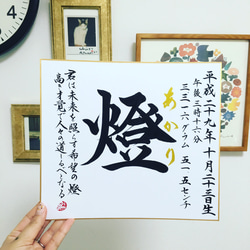 平成二十九年十月二十三日生
午後三時十六分
三三一六グラム 五一五センチ
あかり
燈
君は未来を照らす希望の燈
高き才覚で人々の道しるべとなる
4